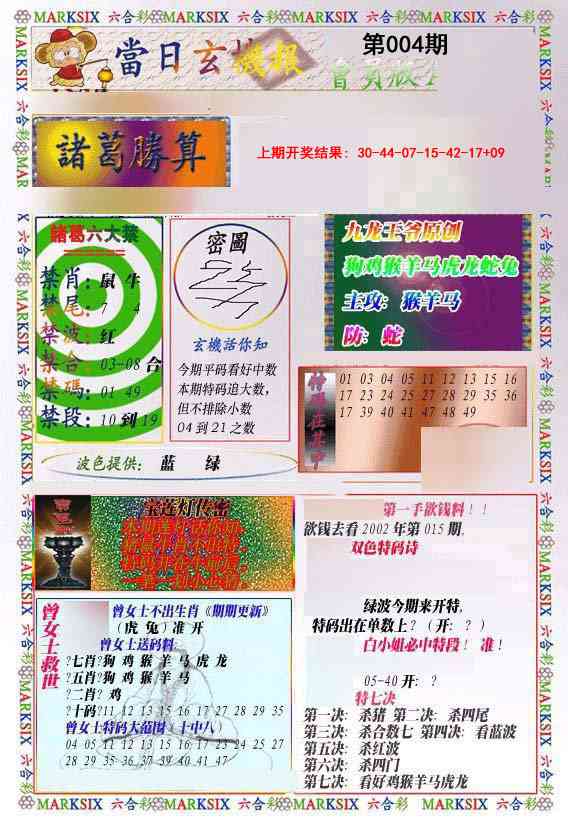 MARKSIX 六合彩 MARKSIX 六合彩 MARKSIX 六合彩 MARKSIX 六合彩
當日玄機報
第004期
會員版
諸葛勝算
上期开奖结果: 30-44-07-15-42-17+09
諸葛六大禁
禁肖: 鼠 牛
禁尾: 7 4
禁波: 红
禁合: 03-08 合
禁碼: 01 49
禁段: 10 到 19
密圖
玄機活你知
今期平码看好中数
本期特码追大数,
但不排除小数
04 到 21 之数
九龙王爷原创
狗鸡猴羊马虎龙蛇兔
主攻: 猴羊马
防: 蛇
特码在其中
01 03 04 05 11 12 13 15 16
17 23 24 25 27 28 29 35 36
17 39 40 41 47 48 49
波色提供: 蓝 绿
宝莲灯传密
曾女士救世
曾女士不出生肖《期期更新》
(虎 兔) 准 开
曾女士送码料
?七肖?狗 鸡 猴 羊 马 虎 龙
?五肖?狗 鸡 猴 羊 马
?二肖? 鸡
?十码?11 12 13 15 16 17 27 28 29 35
曾女士特码大范围 (十中八)
04 05 11 12 13 15 16 17 23 24 25 27
28 29 35 36 37 39 40 41 47
第一手欲钱料!!
欲钱去看 2002 年第 015 期,
双色特码诗
绿波今期来开特,
特码出在单数上? (开: ?)
白小姐必中特段! 准!
05-40 开: ?
特七决
第一决: 杀猪 第二决: 杀四尾
第三决: 杀合数七 第四决: 看蓝波
第五决: 杀红波
第六决: 杀四门
第七决: 看好鸡猴羊马虎龙
MARKSIX 六合彩 MARKSIX 六合彩 MARKSIX 六合彩 MARKSIX 六合彩